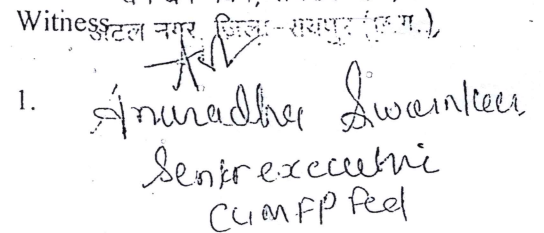 Witness
अटल नगर, जिला-रायपुर (छ.ग.),
1. Anuradha Swarnkar
Senior executive
CGMFP Fed